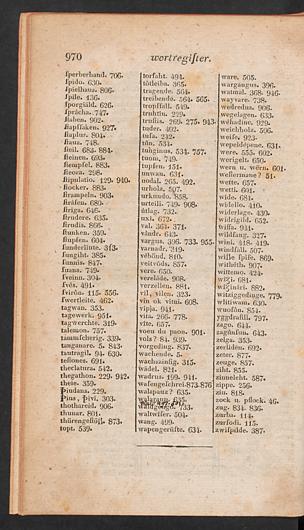 970 wortregister.
sperberhand. 706.
spido. 630.
spielhaus. 806.
spile. 436.
sporgüld. 626.
sprâcha. 747.
staben. 902.
stapsaken. 927.
staplur. 804.
staua. 748.
steil. 684. 884.
steinen. 693.
stempfel. 883.
steora. 298.
stipulatio. 129. 940.
stocker. 883.
strampeln. 903.
sträsen. 680.
striga. 646.
strudere. 635.
strudis. 866.
stunken. 359.
stupfen. 604.
sunderliute. 313.
sungiht. 385.
sunnis. 847.
suana. 749.
sveinn. 304.
svês. 491.
svirön. 115. 556.
swertleite. 462.
tagwan. 353.
tagewerk. 951.
tagwerchte. 319.
talemon. 757.
tamnscherig. 339.
tanganare. 5. 843.
tautragil. 94. 630.
testones. 691.
theclatura. 542.
thegathon. 229. 942.
theie. 359.
Þiudans. 229.
Þina, Þivi, 303.
thothareid. 906.
thunar. 801.
thüringenfluß. 873.
topt. 539.
torfaht. 494.
tôtleiba. 365.
tragende. 564.
treibende. 564. 565.
tropffall. 549.
truhtin. 229.
trustis. 269. 275. 943.
tuder. 492.
tufa. 242.
tûn. 534.
tunginus. 534. 757.
tuom. 749.
tupfen. 151.
unwan. 631.
uodal. 265. 492.
urhola. 507.
urkundo. 858.
urteill. 749. 908.
útlag. 732.
uxi. 679.
val. 361. 371.
vändr. 642.
vargus. 396. 733. 955.
varnadr. 319.
vebönd. 810.
veitvôds. 857.
vere. 650.
verelâde. 908.
verzellen. 881.
vil, vilen. 323.
vin ok vini. 608.
vipja. 941.
vita. 266. 778.
vite. 657.
voen du moee. 901.
vola? 84. 939.
vorgeding. 837.
wachende. 5.
wachszinsig. 315.
wâdel. 821.
wadrus. 199. 941.
wafengeschrei. 873. 876
walapauz? 635.
walaraup. 635.
waldgenge. 733.
waltwiser. 504.
wang. 499.
wapengerüfte. 634.
ware. 505.
wargangus. 396.
watmal. 368. 946.
wayvare. 738.
wedredus. 906.
wegelagen. 633.
wehadine. 929.
weichholz. 506.
weife. 923.
wegweidesnen. 631.
were. 555. 602.
werigelt. 650.
wern u. wern. 601.
westermane? 51.
wette. 657.
wetti. 601.
wide. 684.
widello. 410.
widerlage. 430.
widrigild. 652.
wiffa. 941.
wildfang. 327.
wini. 418. 419.
windfall. 507.
wisse speise. 869.
wizhëith. 907.
wittemo. 424.
wîzi. 681.
wîginhêt. 882.
witziggedinge. 779.
wititwam. 630.
wuofôn. 851.
yggdrasill. 797.
zago. 644.
zagûnsun. 643.
zelga. 353.
zerliden. 692.
zeter. 877.
zeuge. 857.
ziht. 855.
zinnelehn. 587.
zippe. 256.
zin. 818.
zock u. pflock. 46.
zug. 834. 836.
zurba. 114.
zurfodi. 115.
zwispilde. 387.